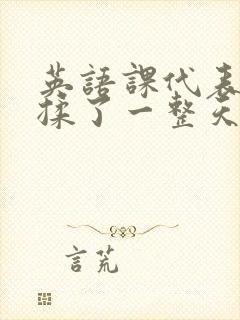 英語課代表
揉了一整天
言荒